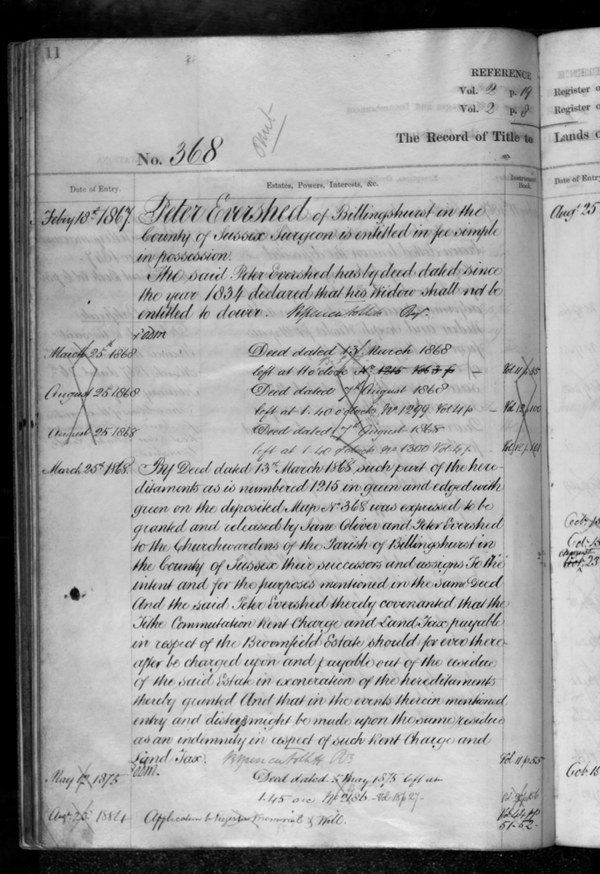 11
REFERENCE
Vol. 2 p. 19
Vol. 2 p. 8
Register o
Register o
The Record of Title to
Lands o
No. 368
Date of Entry.
Estates, Powers, Interests, &c.
Instrument Book.
Date of Entry
Febry 18th 1867.
Peter Evershed of Billingshurst in the
County of Sussex Surgeon is entitled in fee simple
in possession.
The said Peter Evershed has by deed dated since
the year 1834 declared that his Widow shall not be
entitled to dower.
Augt 25
March 25th 1868
Deed dated 13th March 1868
left at 11 o'clock No. 1215 1868 p — Vol. 11 p. 55
August 25 1868
Deed dated 7th August 1868
left at 1.40 o'clock No 1299 Vol 4 p — Vol. 12 p. 100
August 25 1868
Deed dated 7th August 1868
left at 1.40 o'clock No 1300 Vol. 4 p.
March 25th 1868.
By Deed dated 13th March 1868, such part of the here-
ditaments as is numbered 1215 in green and edged with
green on the deposited Map No. 368 was expressed to be
granted and released by Jane Oliver and Peter Evershed
to the Churchwardens of the Parish of Billingshurst in
the County of Sussex their successors and assigns To the
intent and for the purposes mentioned in the same Deed
And the said Peter Evershed thereby covenanted that the
Tithe Commutation Rent Charge and Land Tax payable
in respect of the Broomfield Estate should for ever there-
after be charged upon and payable out of the residue
of the said Estate in exoneration of the hereditaments
thereby granted And that in the events therein mentioned
entry and distress might be made upon the same residue
as an indemnity in respect of such Rent Charge and
Land Tax.
Vol. 11 p. 55
May 12 1875
Deed dated 5 May 1875 left at
1.45
Augt 25th 1884
Application to Register & Will.
51-52-